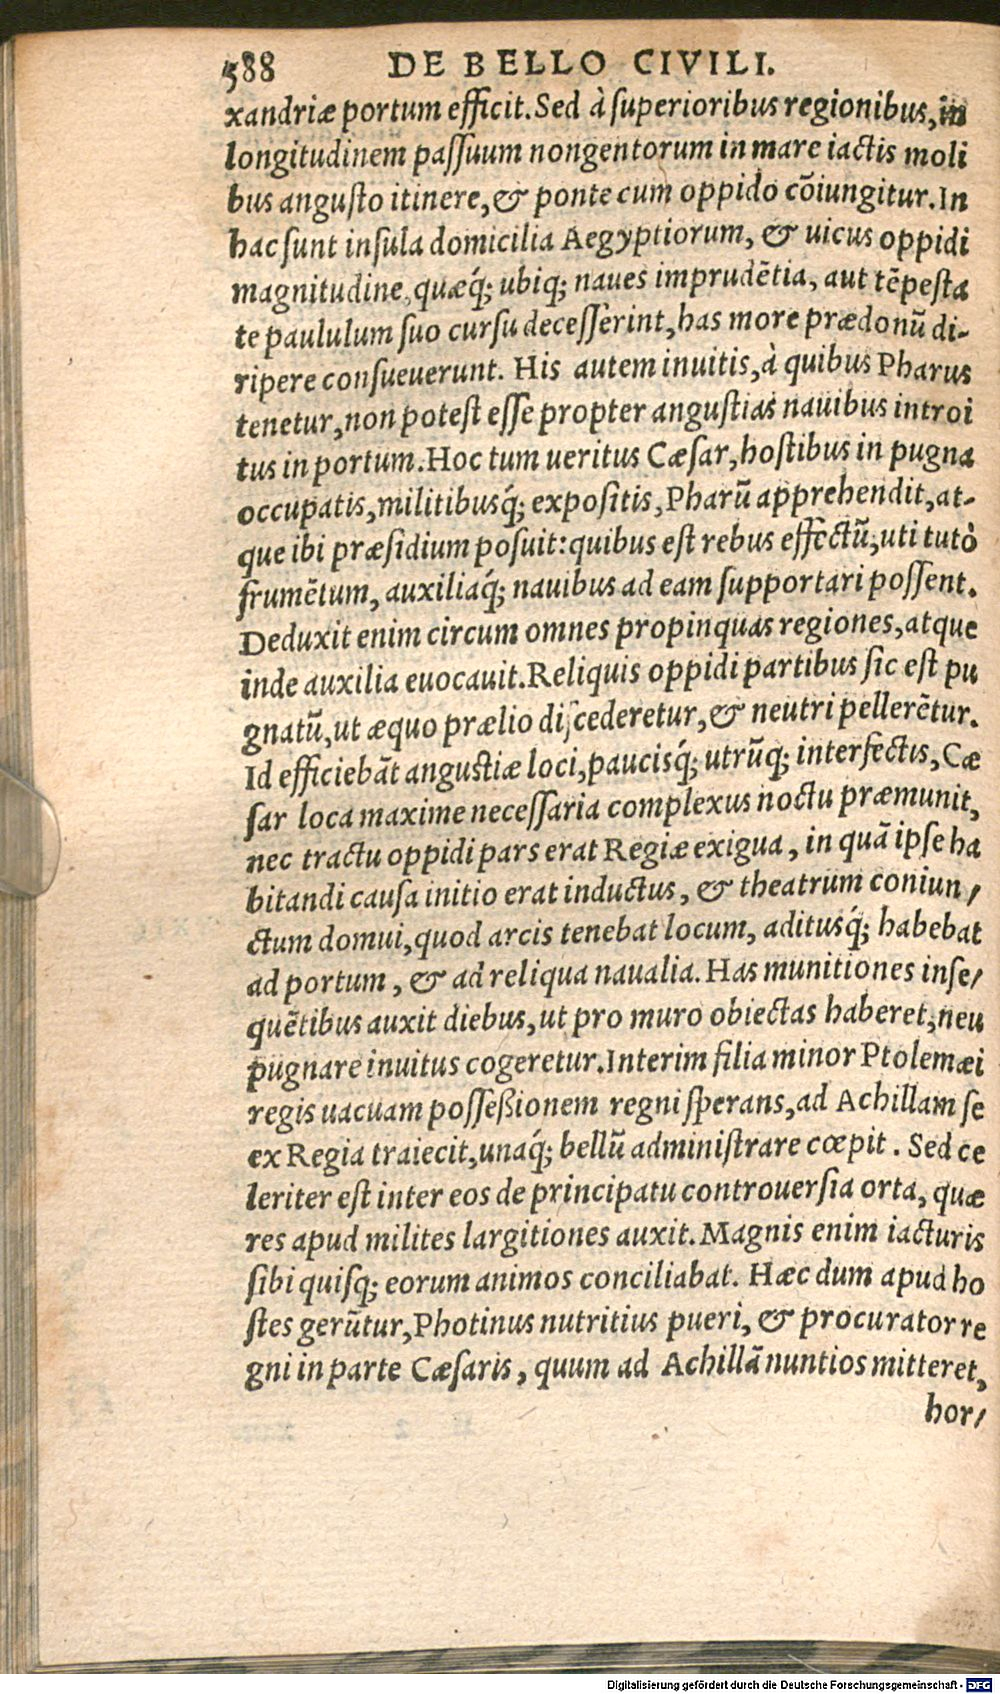 588 DE BELLO CIVILI.
xandriæ portum efficit. Sed à superioribus regionibus, in
longitudinem passuum nongentorum in mare iactis moli
bus angusto itinere, & ponte cum oppido cōiungitur. In
hac sunt insula domicilia Aegyptiorum, & uicus oppidi
magnitudine, quæq́; ubiq; naues imprudētia, aut tēpesta
te paululum suo cursu decesserint, has more prædonū di-
ripere consueuerunt. His autem inuitis, à quibus Pharus
tenetur, non potest esse propter angustias nauibus introi
tus in portum. Hoc tum ueritus Cæsar, hostibus in pugna
occupatis, militibusq́; expositis, Pharū apprehendit, at-
que ibi præsidium posuit: quibus est rebus effectū, uti tutò
frumētum, auxiliaq́; nauibus ad eam supportari possent.
Deduxit enim circum omnes propinquas regiones, atque
inde auxilia euocauit. Reliquis oppidi partibus sic est pu
gnatū, ut æquo prælio discederetur, & neutri pellerētur.
Id efficiebāt angustiæ loci, paucisq́; utrūq; interfectis, Cæ
sar loca maxime necessaria complexus noctu præmunit,
nec tractu oppidi pars erat Regiæ exigua, in quā ipse ha
bitandi causa initio erat inductus, & theatrum coniun/
ctum domui, quod arcis tenebat locum, aditusq́; habebat
ad portum, & ad reliqua naualia. Has munitiones inse/
quētibus auxit diebus, ut pro muro obiectas haberet, neu
pugnare inuitus cogeretur. Interim filia minor Ptolemæi
regis uacuam posseßionem regni sperans, ad Achillam se
ex Regia traiecit, unaq́; bellū administrare cœpit. Sed ce
leriter est inter eos de principatu controuersia orta, quæ
res apud milites largitiones auxit. Magnis enim iacturis
sibi quisq; eorum animos conciliabat. Hæc dum apud ho
stes gerūtur, Photinus nutritius pueri, & procurator re
gni in parte Cæsaris, quum ad Achillā nuntios mitteret,
hor/
Digitalisierung gefördert durch die Deutsche Forschungsgemeinschaft - DFG